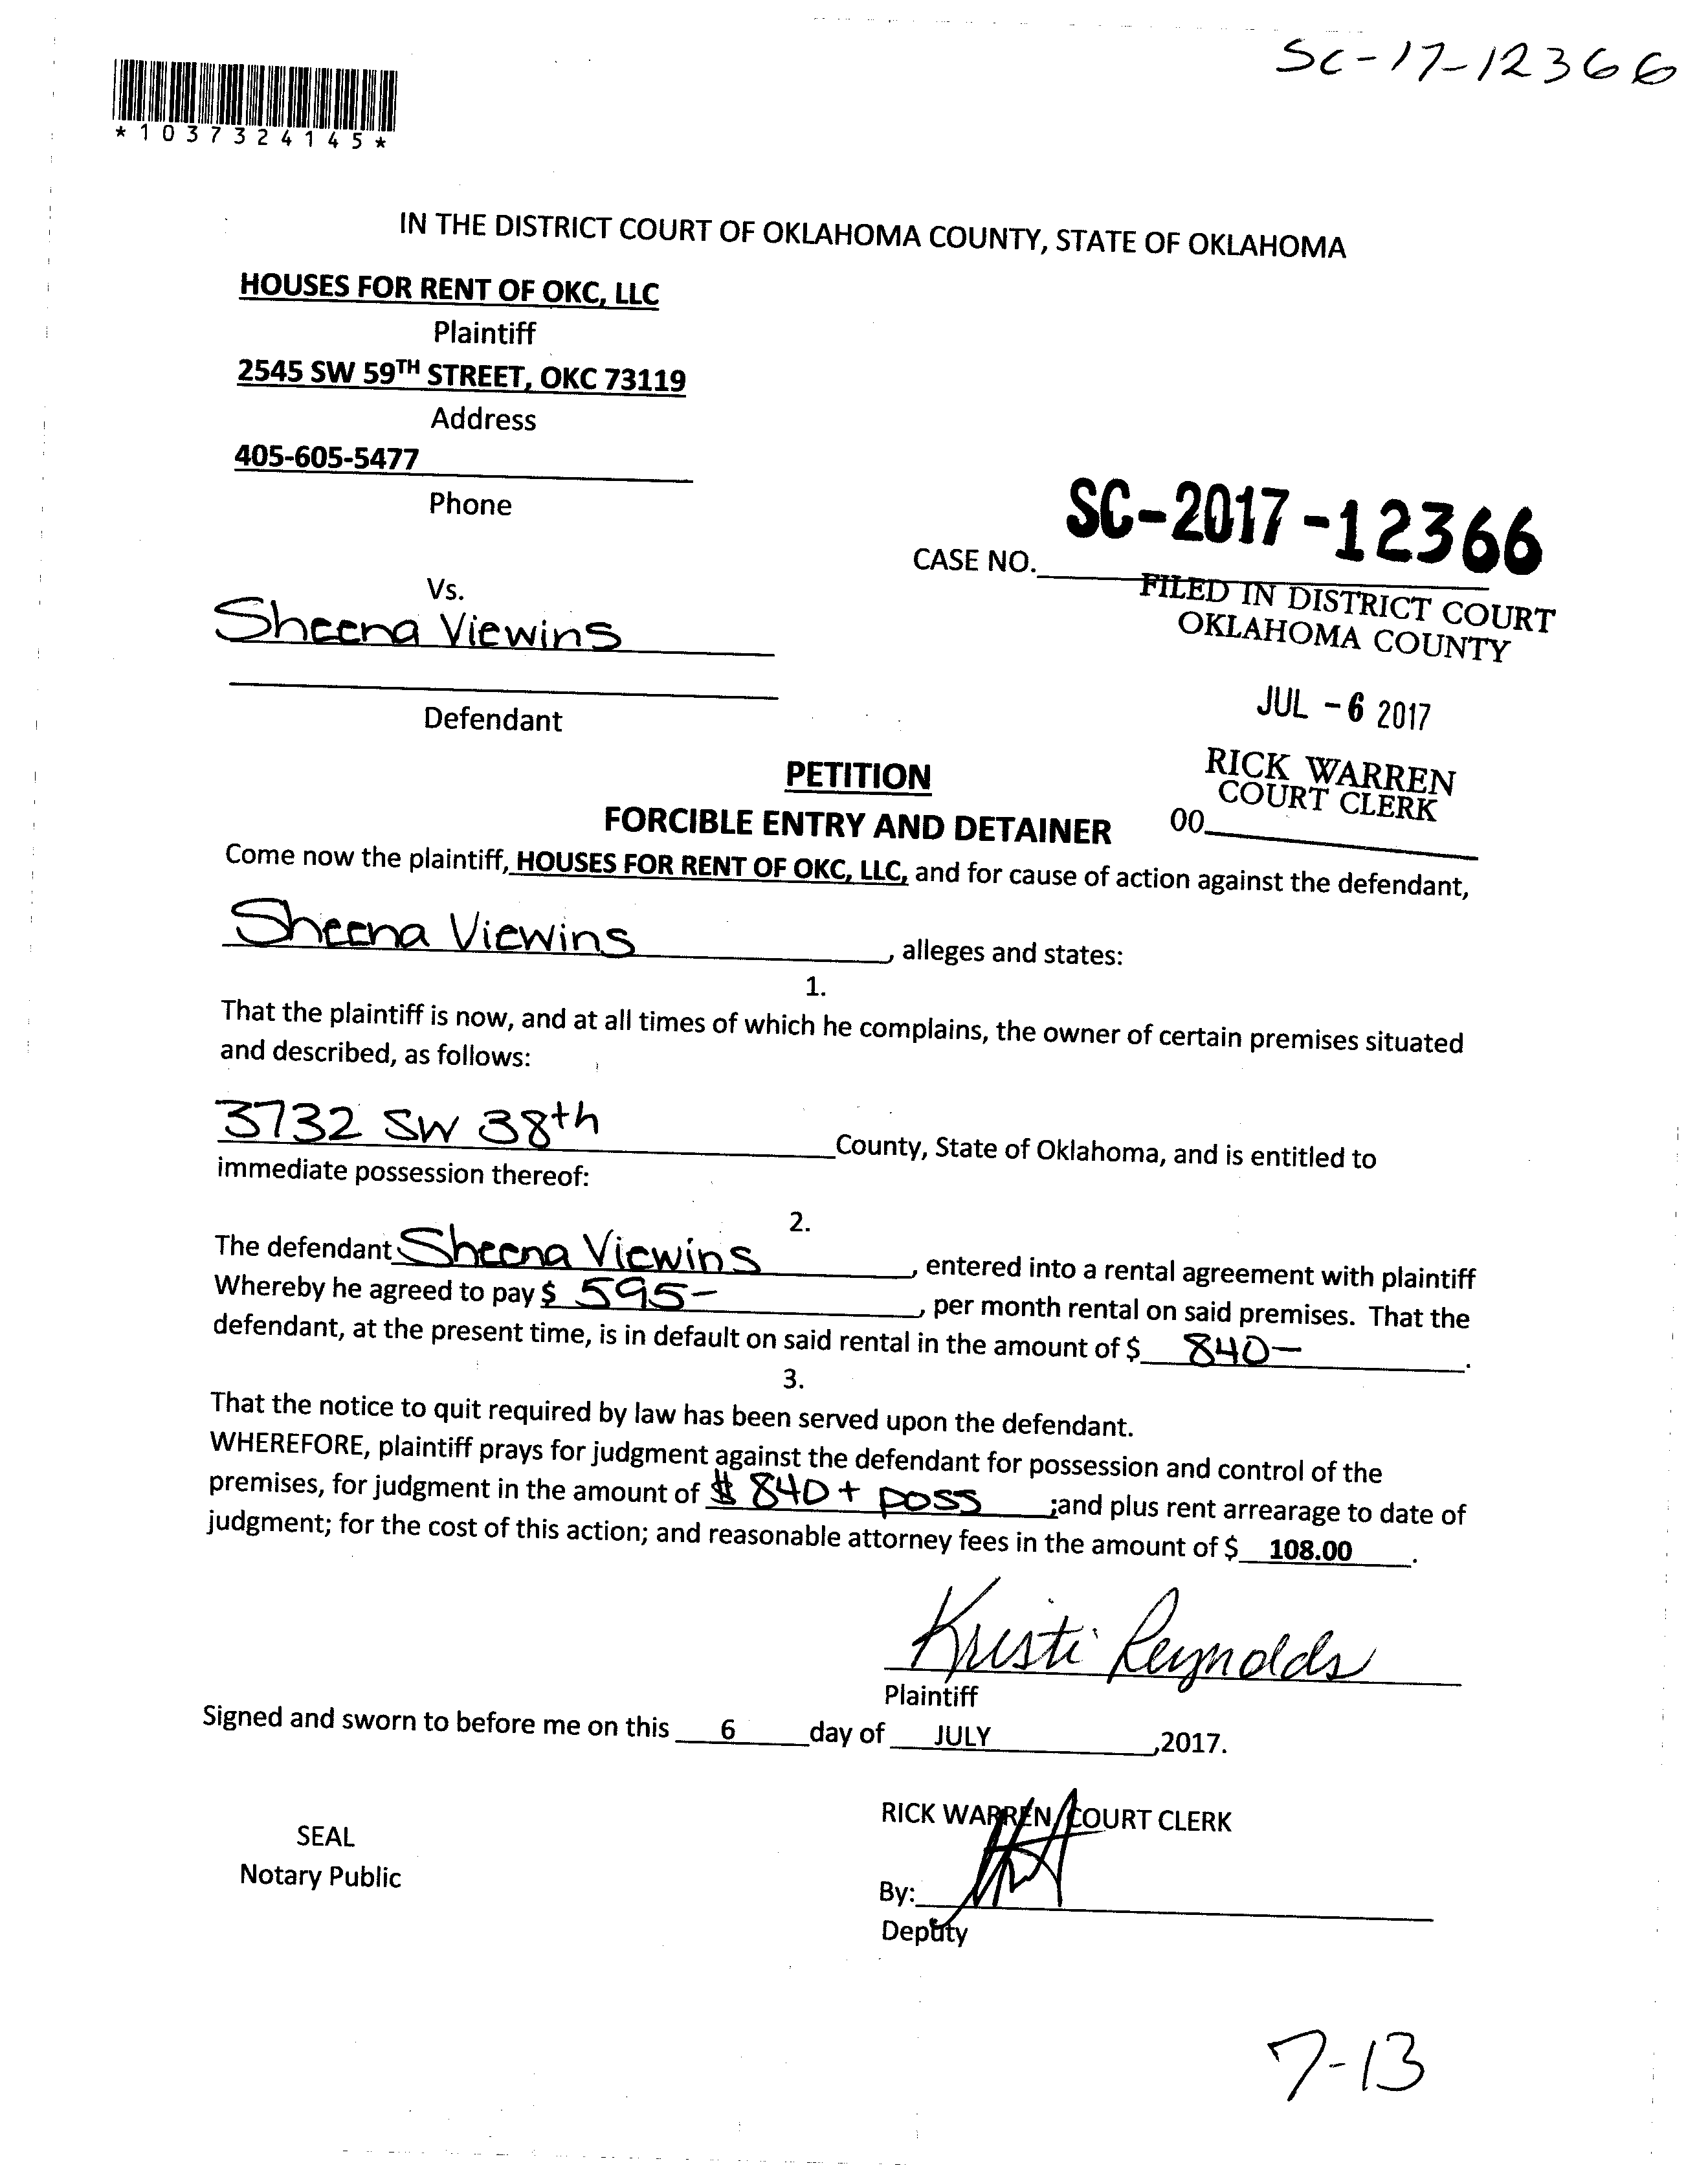 SC-17-12366
*1037324145*
IN THE DISTRICT COURT OF OKLAHOMA COUNTY, STATE OF OKLAHOMA
HOUSES FOR RENT OF OKC, LLC
Plaintiff
2545 SW 59TH STREET, OKC 73119
Address
405-605-5477
Phone
SC-2017-12366
CASE NO.
FILED IN DISTRICT COURT
OKLAHOMA COUNTY
Vs.
Sheena Viewins
JUL -6 2017
Defendant
RICK WARREN
COURT CLERK
00
PETITION
FORCIBLE ENTRY AND DETAINER
Come now the plaintiff, HOUSES FOR RENT OF OKC, LLC, and for cause of action against the defendant,
Sheena Viewins, alleges and states:
1.
That the plaintiff is now, and at all times of which he complains, the owner of certain premises situated
and described, as follows:
3732 SW 38th County, State of Oklahoma, and is entitled to
immediate possession thereof:
2.
The defendant Sheena Viewins, entered into a rental agreement with plaintiff
Whereby he agreed to pay $ 595-, per month rental on said premises. That the
defendant, at the present time, is in default on said rental in the amount of $ 840-.
3.
That the notice to quit required by law has been served upon the defendant.
WHEREFORE, plaintiff prays for judgment against the defendant for possession and control of the
premises, for judgment in the amount of $ 840 + poss ;and plus rent arrearage to date of
judgment; for the cost of this action; and reasonable attorney fees in the amount of $ 108.00.
Kristi Reynolds
Plaintiff
Signed and sworn to before me on this 6 day of JULY,2017.
RICK WARREN, COURT CLERK
SEAL
Notary Public
By:
Deputy
7-13